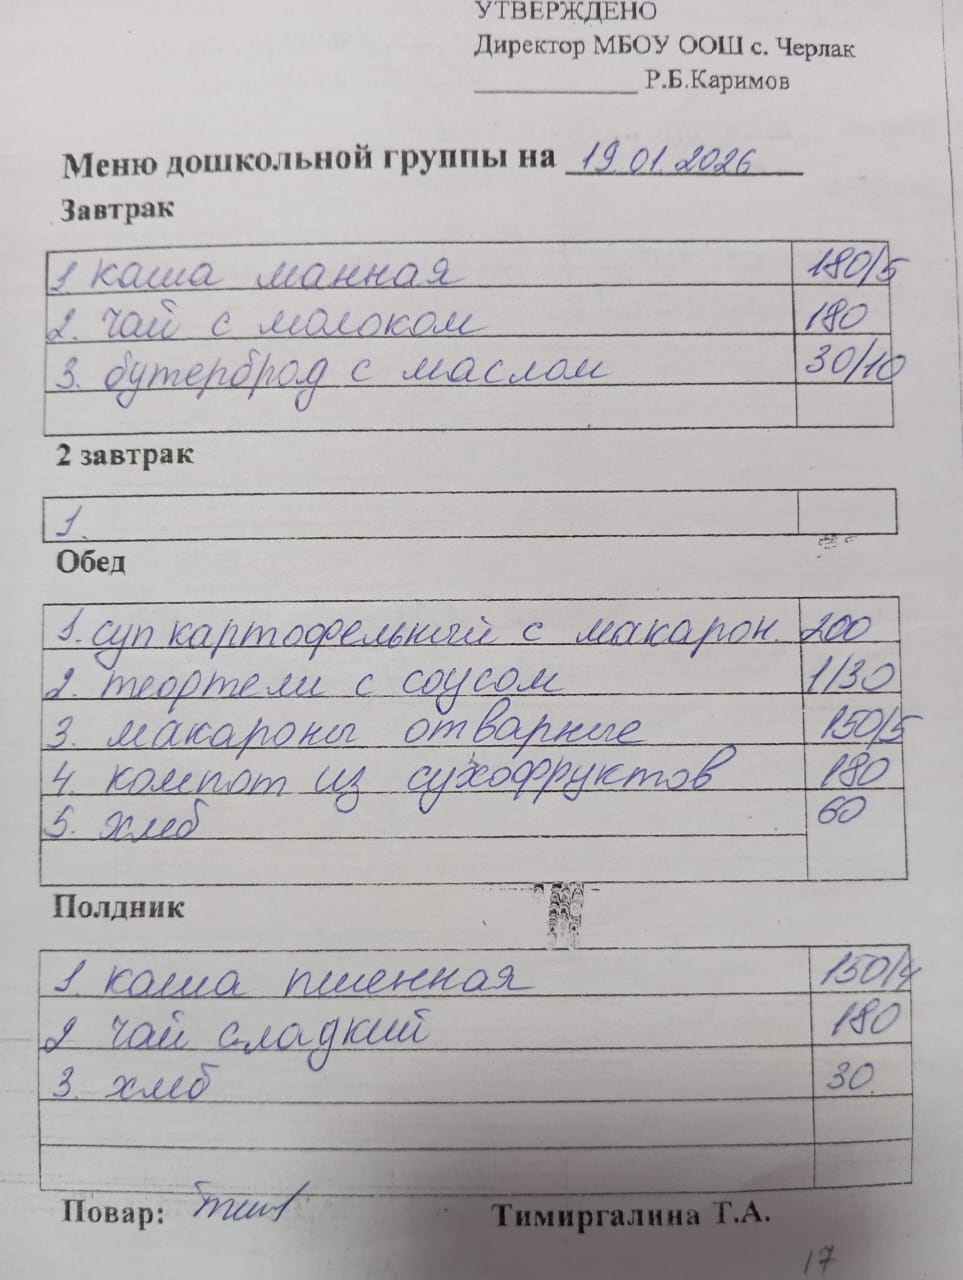 УТВЕРЖДЕНО
Директор МБОУ ООШ с. Черлак
____________ Р.Б.Каримов
Меню дошкольной группы на 19.01.2026
Завтрак
1 каша манная 180/5
2. чай с молоком 180
3. бутерброд с маслом 30/10
2 завтрак
1.
Обед
1. суп картофельный с макарон. 200
2. теортели с соусом 1/30
3. макароны отварные 150/5
4. компот из сухофруктов 180
5. хлеб 60
Полдник
1 каша пшенная 150/4
2 чай сладкий 180
3. хлеб 30
Повар: Тимиргалина Т.А.
17